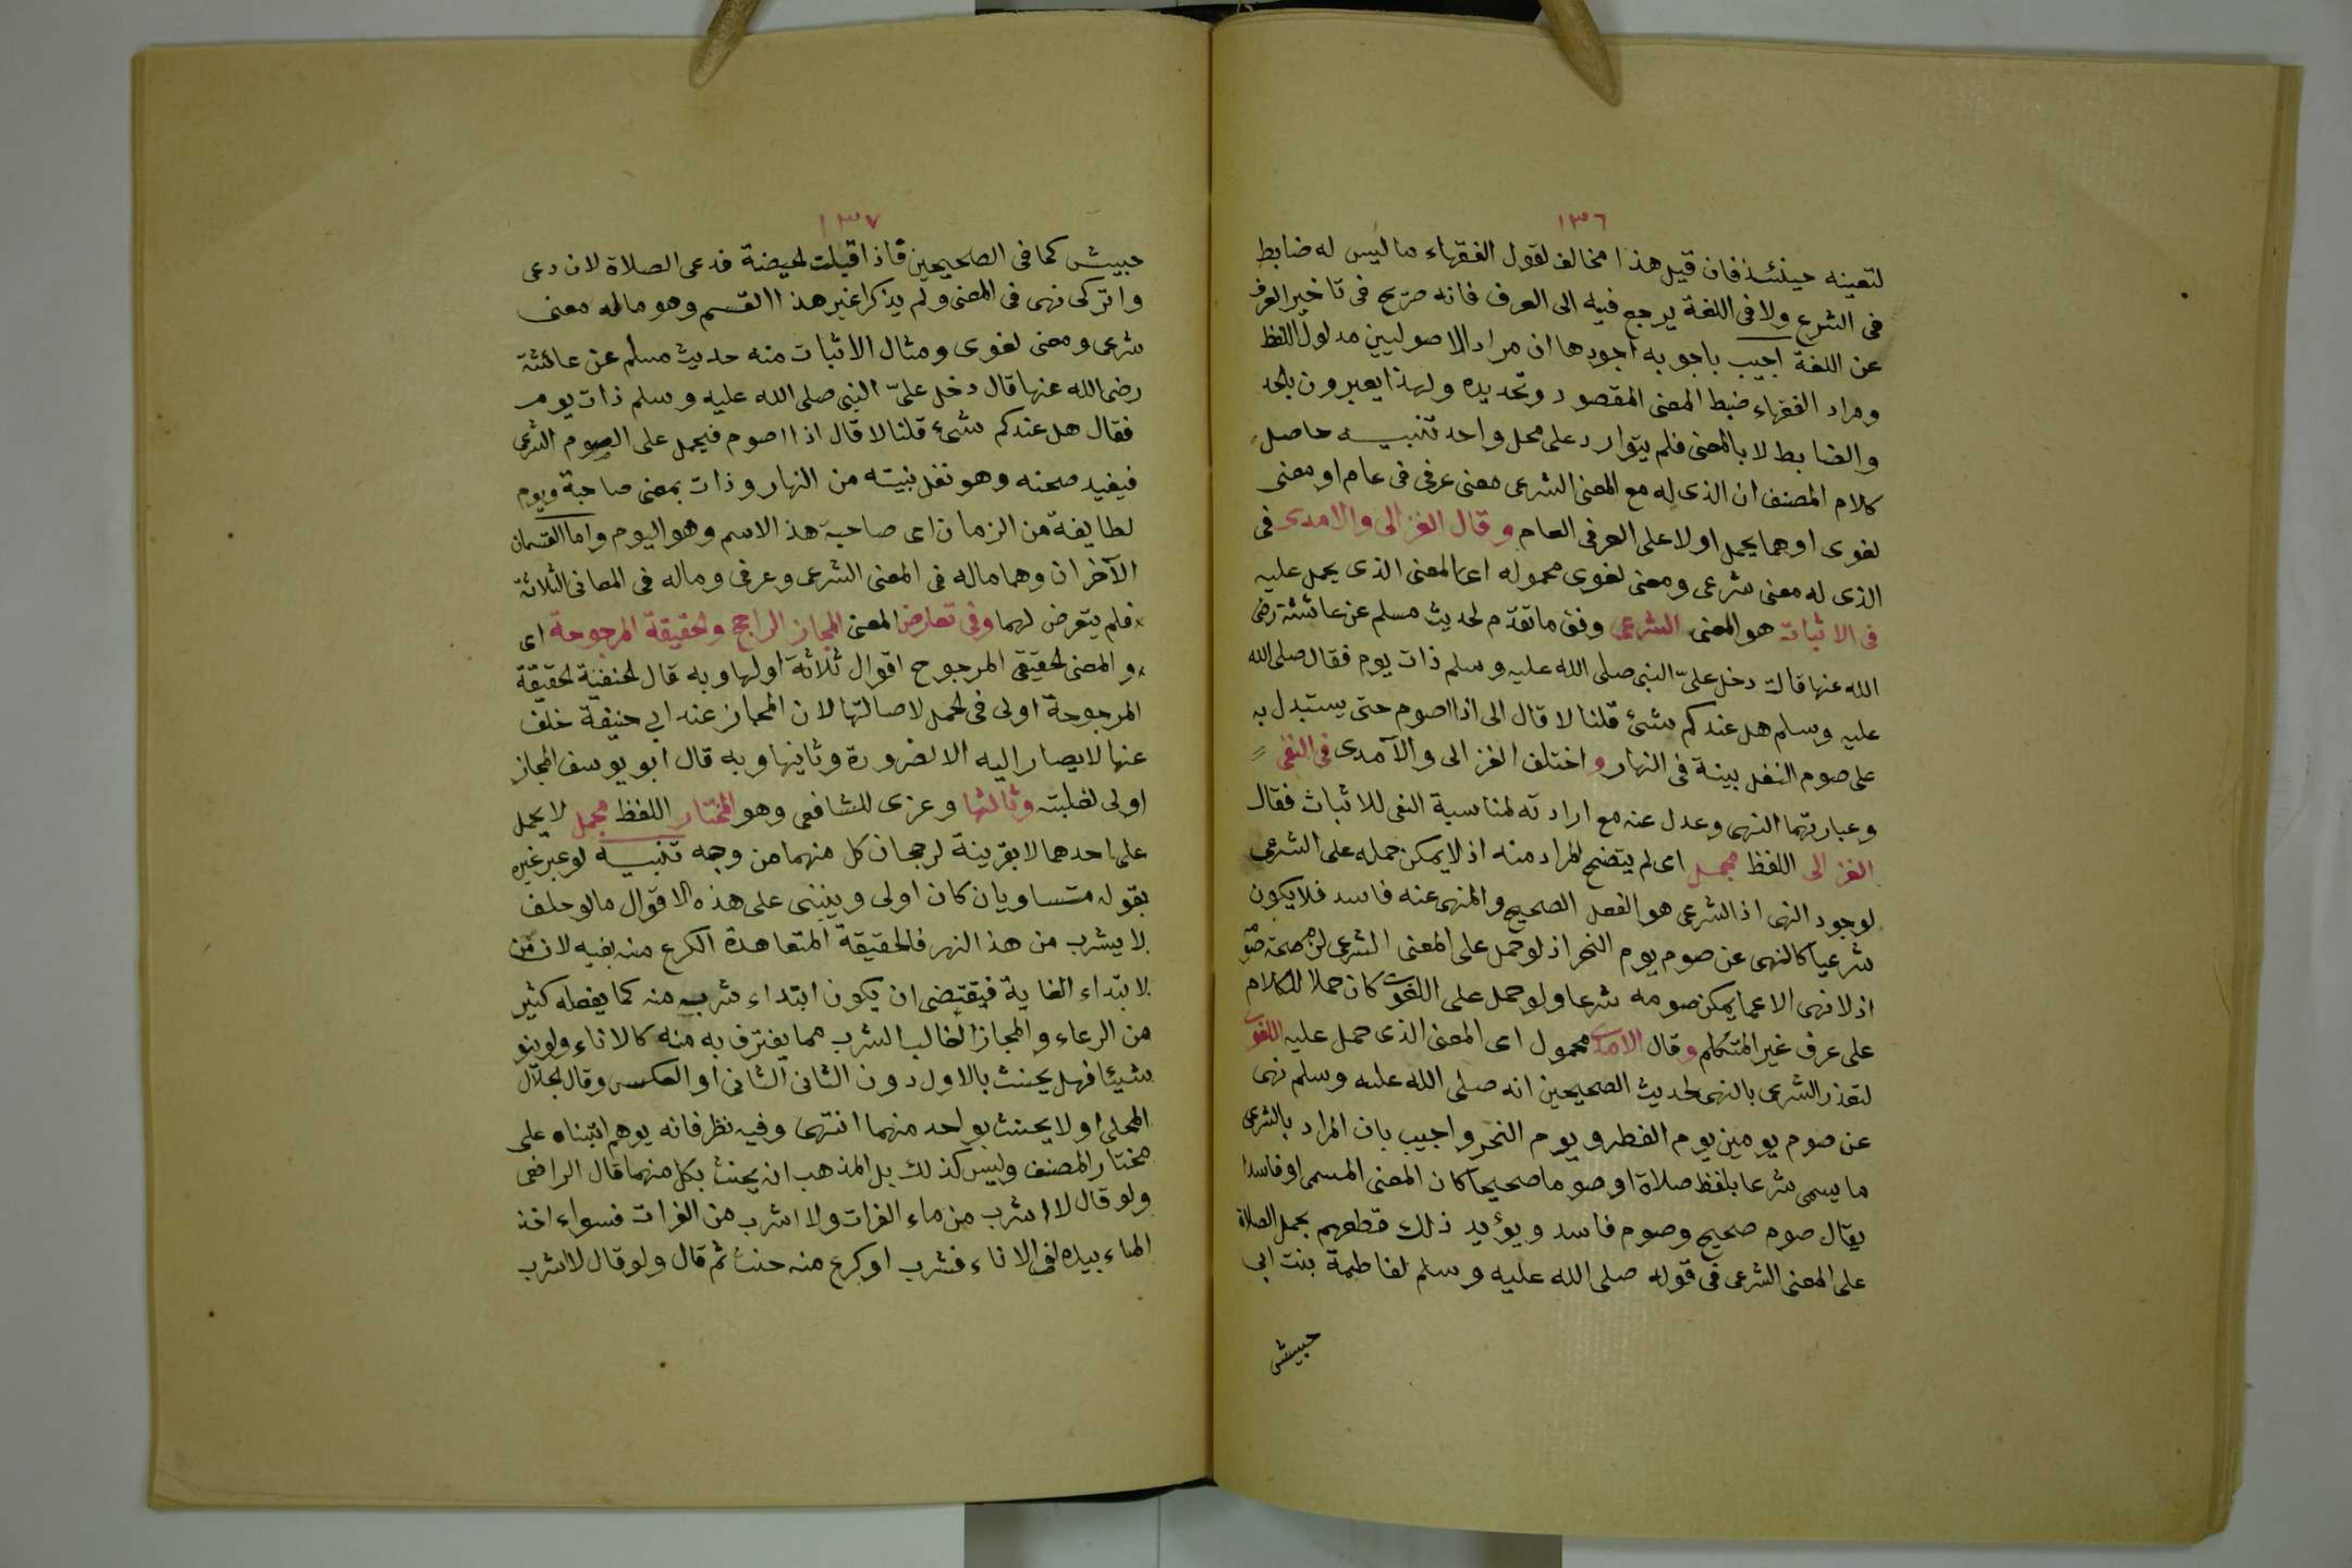 ١٣٦
لتعينه حينئذ فان قيل هذا مخالف لقول الفقهاء ما ليس له ضابط
فى الشرع ولا فى اللغة يرجع فيه الى العرف فانه صريح فى تاخير العرف
عن اللغة اجيب باجوبه اجودها ان مراد الاصوليين مدلول اللفظ
ومراد الفقهاء ضبط المعنى المقصود وتحديده ولهذا يعبرون بالحد
والضابط لا بالمعنى فلم يتوارد على محل واحد تنبيه حاصل
كلام المصنف ان الذى له مع المعنى الشرعى معنى عرفى فى عام او معنى
لغوى او هما يحمل اولا على العرفى العام وقال الغزالى والامدى فى
الذى له معنى شرعى ومعنى لغوى محموله اى المعنى الذى يحمل عليه
فى الاثبات هو المعنى الشرعى وفق ما تقدّم لحديث مسلم عن عائشة رضى
الله عنها قالت دخل علىّ النبى صلى الله عليه وسلم ذات يوم فقال صلى الله
عليه وسلم هل عندكم شئ قلنا لا قال الى اذا اصوم حتى يستبدل به
على صوم النفل بينة فى النهار واختلف الغزالى والآمدى فى النفى
وعبارتهما النهى وعدل عنه مع ارادته لمناسبة النفى للاثبات فقال
الغزالى اللفظ مجمل اى لم يتضح المراد منه اذ لا يمكن حمله على الشرعى
لوجود النهى اذ الشرعى هو الفعل الصحيح والمنهى عنه فاسد فلا يكون
شرعيا كالنهى عن صوم يوم النحر اذ لو حمل على المعنى الشرعى لزم صحة صومه
اذ لا نهى الا عما يمكن صومه شرعا ولو حمل على اللغوى كان حملا للكلام
على عرف غير المتكلم وقال الامدى محمول اى المعنى الذى حمل عليه اللغوى
لتعذر الشرعى بالنهى لحديث الصحيحين انه صلى الله عليه وسلم نهى
عن صوم يومين يوم الفطر ويوم النحر واجيب بان المراد بالشرعى
ما يسمى شرعا بلفظ صلاة او صوما صحيحا كان المعنى المسمى او فاسدا
يقال صوم صحيح وصوم فاسد ويؤيد ذلك قطعهم بحمل الصلاة
على المعنى الشرعى فى قوله صلى الله عليه وسلم لفاطمة بنت ابى
حبيش
١٣٧
حبيش كما فى الصحيحين فاذا اقبلت الحيضة فدعى الصلاة لان دعى
واتركى نهى فى المعنى ولم يذكرا غير هذا القسم وهو ماله معنى
شرعى ومعنى لغوى ومثال الاثبات منه حديث مسلم عن عائشة
رضى الله عنها قال دخل علىّ النبى صلى الله عليه وسلم ذات يوم
فقال هل عندكم شئ قلنا لا قال اذا اصوم فيحمل على الصوم الشرعى
فيفيد صحته وهو نفل بنيته من النهار وذات بمعنى صاحبة ويوم
لطايفة من الزمان اى صاحبة هذ الاسم وهو اليوم واما القسمان
الآخران وهما ماله فى المعنى الشرعى وعرفى وماله فى المعانى الثلاثة
فلم يتعرض لهما وفى تعارض المعنى المجاز الراجح والحقيقة المرجوحة اى
والمعنى الحقيقى المرجوح اقوال ثلاثة اولها وبه قال الحنفية الحقيقة
المرجوحة اولى فى الحمل لاصالتها لان المجاز عند ابى حنيفة خلف
عنها لا يصار اليه الا لضرورة وثانيها وبه قال ابو يوسف المجاز
اولى لغلبته وثالثها وعزى للشافعى وهو المختار اللفظ مجمل لا يحمل
على احدهما الا بقرينة لرجحان كل منهما من وجه تنبيه لو عبر غيره
بقوله متساويان كان اولى وينبنى على هذه الاقوال ما لو حلف
لا يشرب من هذ النهر فالحقيقة المتعاهدة الكرع منه بفيه لان من
لابتداء الغاية فيقتضى ان يكون ابتداء شربه منه كما يفعله كثير
من الرعاء والمجاز الغالب الشرب مما يغترف به منه كالاناء ولو ينو
شيئا فهل يحنث بالاول دون الثانى الثانى او العكس وقال الجلال
المحلى اولا يحنث بواحد منهما انتهى وفيه نظر فانه يوهم ابتناءه على
مختار المصنف وليس كذلك بل المذهب انه يحنث بكل منهما قال الرافعى
ولو قال لا اشرب من ماء الفرات ولا اشرب من الفرات فسواء اخذ
الماء بيده فى الاناء فشرب او كرع منه حنث ثم قال ولو قال لا اشرب